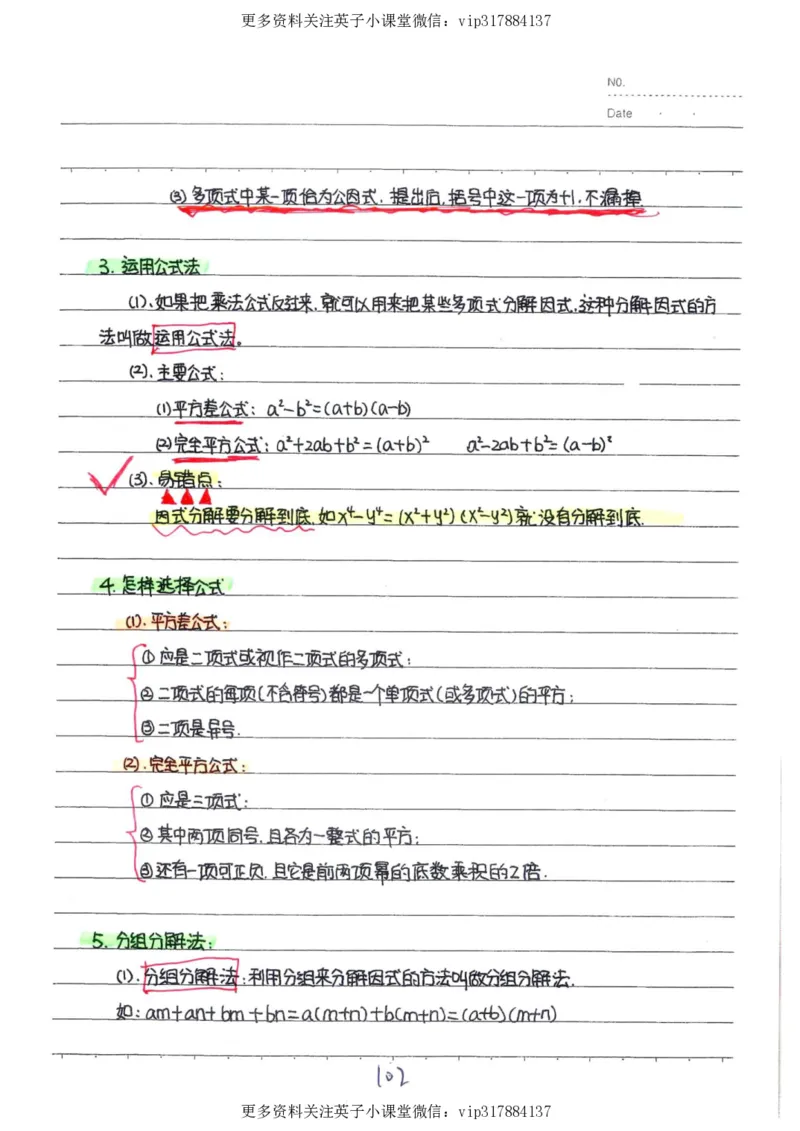 更多资料关注英子小课堂微信：vip317884137
NO.
Date
(3) 多项式中某一项恰为公因式，提出后，括号中这一项为+1，不漏掉
3. 运用公式法
(1)、如果把乘法公式反过来，就可以用来把某些多项式分解因式，这种分解因式的方
法叫做运用公式法。
(2)、主要公式：
(1)平方差公式：a²-b²=(a+b)(a-b)
(2)完全平方公式：a²+2ab+b²=(a+b)² a²-2ab+b²=(a-b)²
(3)、易错点：
因式分解要分解到底，如x⁴-y⁴=(x²+y²)(x²-y²)就没有分解到底.
4. 怎样选择公式
(1)、平方差公式：
① 应是二项式或视作二项式的多项式；
② 二项式的每项(不含符号)都是一个单项式(或多项式)的平方；
③ 二项是异号.
(2)、完全平方公式：
① 应是三项式；
② 其中两项同号，且各为一整式的平方；
③ 还有一项可正负，且它是前两项幂的底数乘积的2倍.
5. 分组分解法：
(1)、分组分解法：利用分组来分解因式的方法叫做分组分解法.
如：am+an+bm+bn=a(m+n)+b(m+n)=(a+b)(m+n)
102
更多资料关注英子小课堂微信：vip317884137